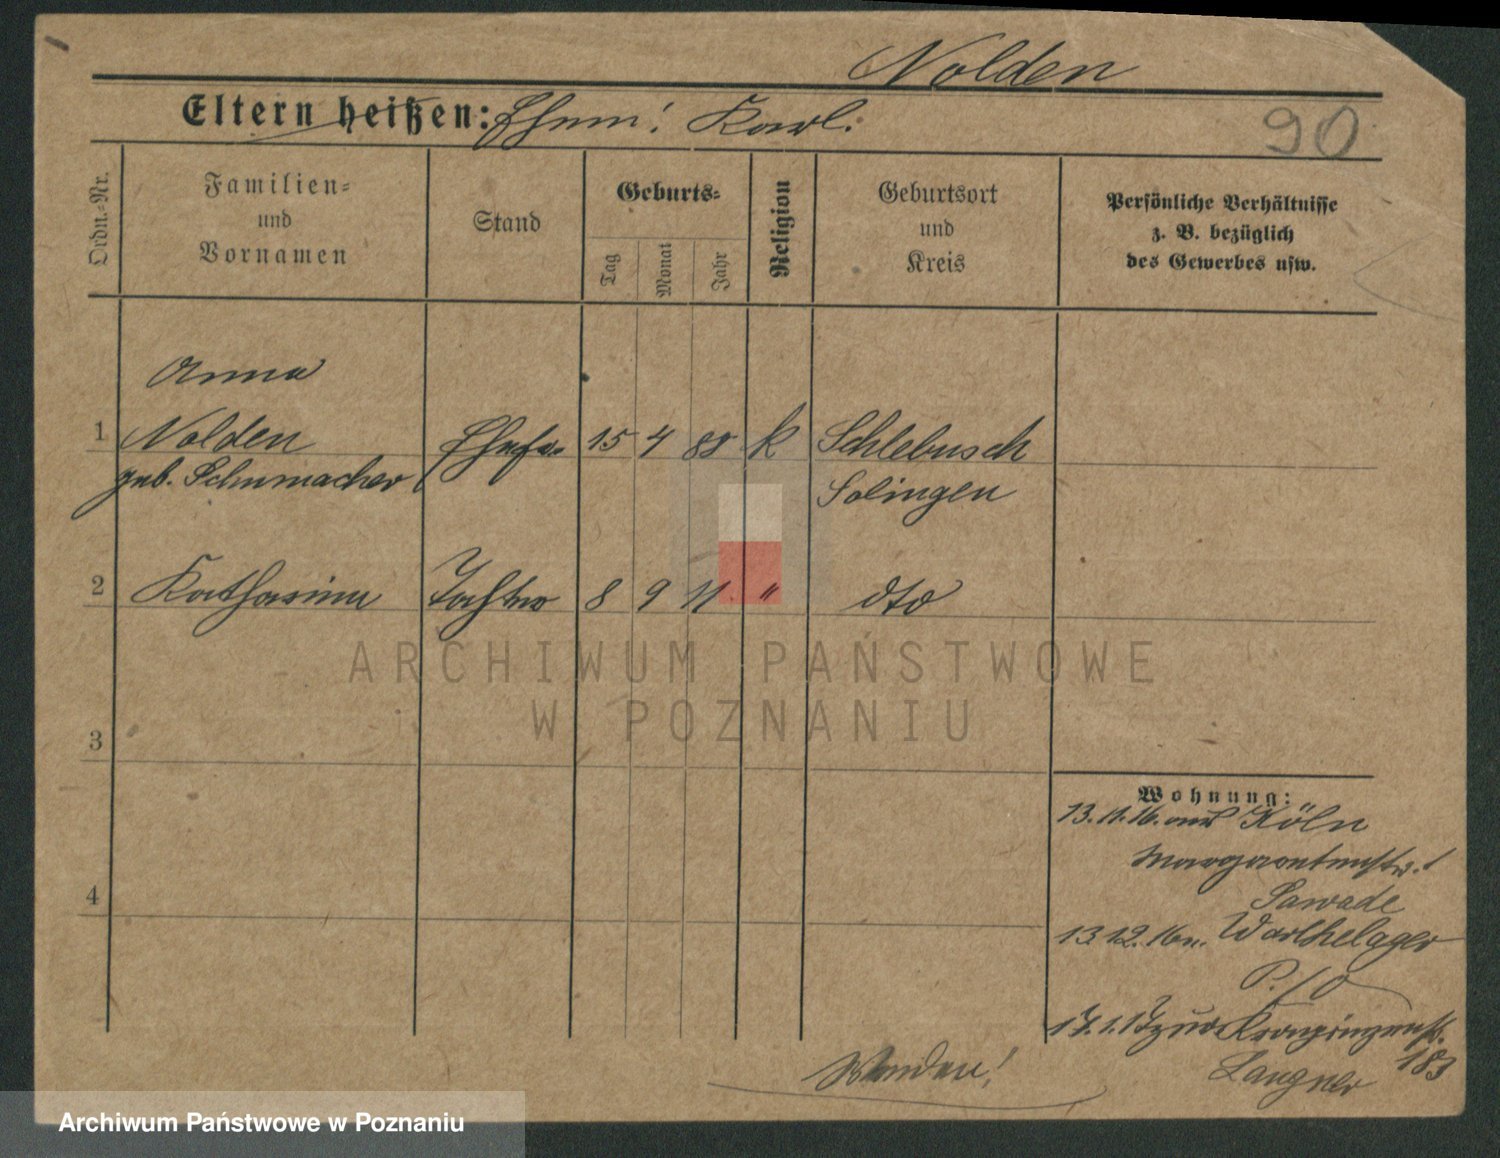 Nolden
Eltern heißen: Ehem: Karl.
90
Ordn.-Nr.
Familien-
und
Vornamen
Stand
Geburts-
Tag
Monat
Jahr
Religion
Geburtsort
und
Kreis
Persönliche Verhältnisse
z. B. bezüglich
des Gewerbes usw.
Anna
1 Nolden Ehefr. 15 4 88 k Schlebusch
geb. Schumacher Solingen
2 Katharina Tochter 8 9 11 " dto
3
4
Wohnung:
13.11.16. aus Köln
Margaretenstr. 1
Sawade
13.12.16 n. Warthelager
P. 10
17.1.17 zur Kronprinzenstr.
183
Langner
Wenden!
ARCHIWUM PAŃSTWOWE
W POZNANIU
Archiwum Państwowe w Poznaniu